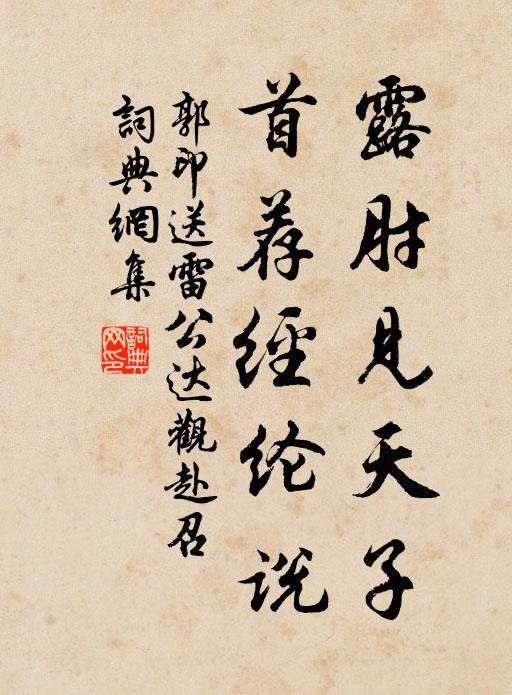 露肘見天子
首荐經纶説
郭印送雷公达觀赴召
詞典網集
詞典网印